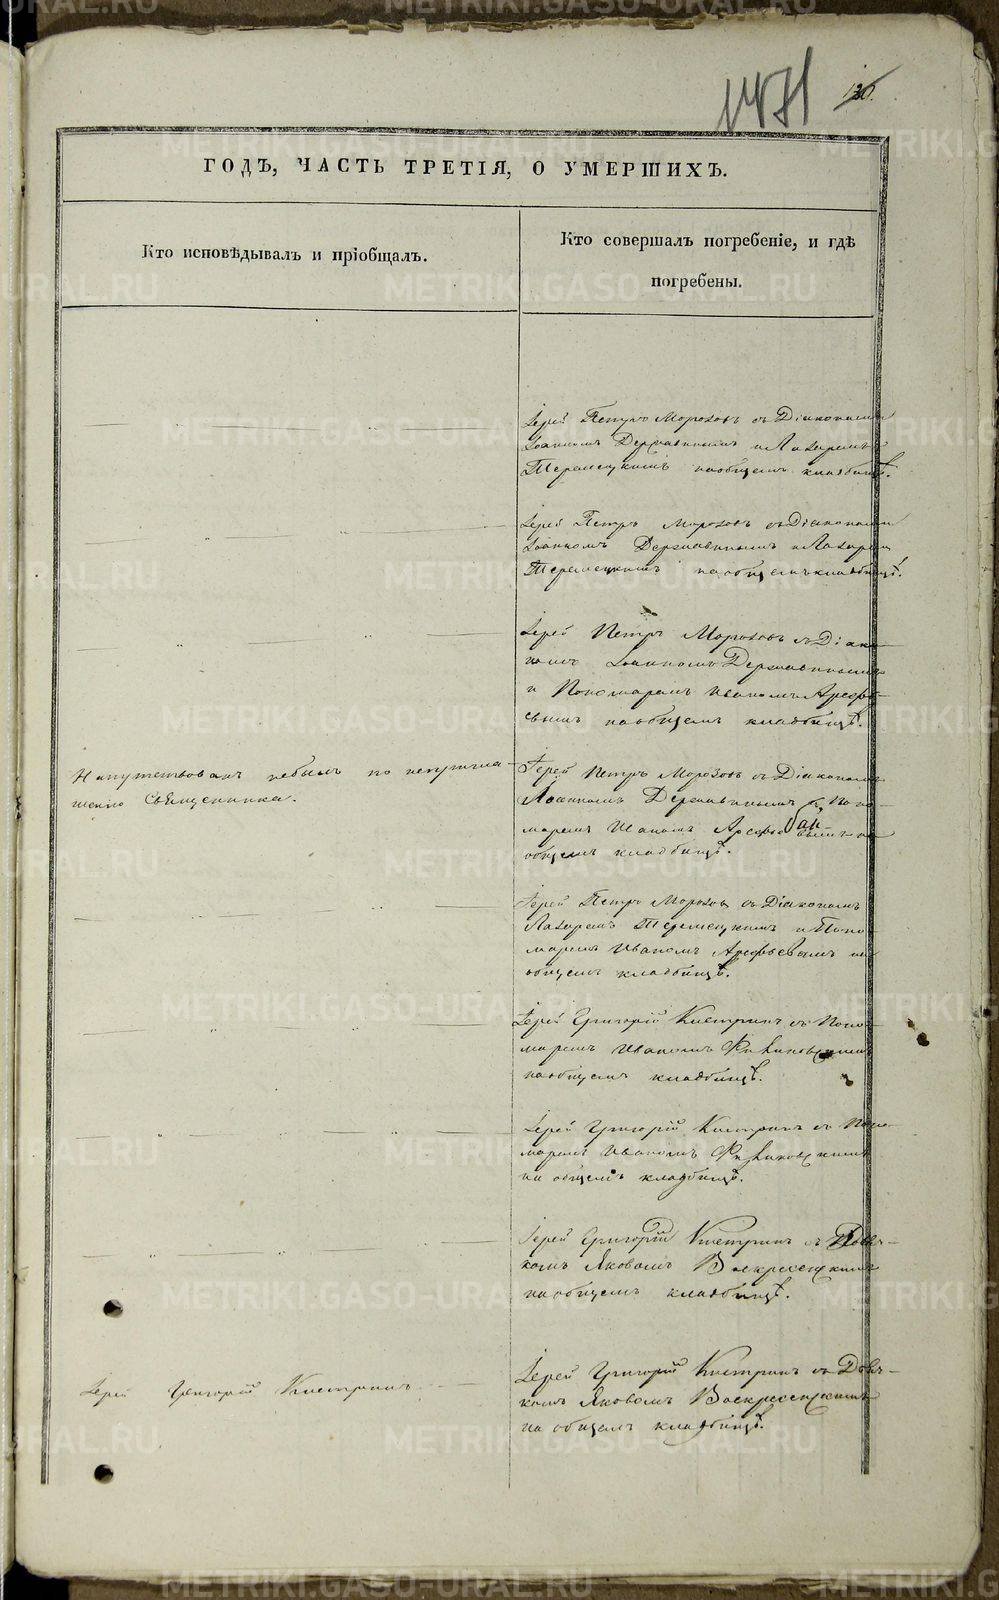 1471
ГОДЪ, ЧАСТЬ ТРЕТІЯ, О УМЕРШИХЪ.
Кто исповѣдывалъ и пріобщалъ.
Кто совершалъ погребеніе, и гдѣ
погребены.
Іерей Петръ Морозовъ съ Діакономъ
Іоанномъ Державинымъ и Лазаремъ
Теремецкимъ на общемъ кладбищѣ.
Іерей Петръ Морозовъ съ Діакономъ
Іоанномъ Державинымъ и Лазаремъ
Теремецкимъ на общемъ кладбищѣ.
Іерей Петръ Морозовъ съ Діако-
номъ Іоанномъ Державинымъ
и Пономаремъ Иваномъ Арефь-
евымъ на общемъ кладбищѣ.
Напутствованъ небылъ по непригла-
шенію Священника.
Іерей Петръ Морозовъ съ Діакономъ
Іоанномъ Державинымъ и Поно-
маремъ Иваномъ Арефьевымъ на
общемъ кладбищѣ.
Іерей Петръ Морозовъ съ Діакономъ
Лазаремъ Теремецкимъ и Поно-
маремъ Иваномъ Арефьевымъ на
общемъ кладбищѣ.
Іерей Григорій Кистринъ съ Поно-
маремъ Иваномъ
на общемъ кладбищѣ.
Іерей Григорій Кистринъ съ Поно-
маремъ Иваномъ
на общемъ кладбищѣ.
Іерей Григорій Кистринъ съ Дьяч-
комъ Яковомъ Воскресенскимъ
на общемъ кладбищѣ.
Іерей Григорій Кистринъ
Іерей Григорій Кистринъ съ Дьяч-
комъ Яковомъ Воскресенскимъ
на общемъ кладбищѣ.
METRIKI.GASO-URAL.RU